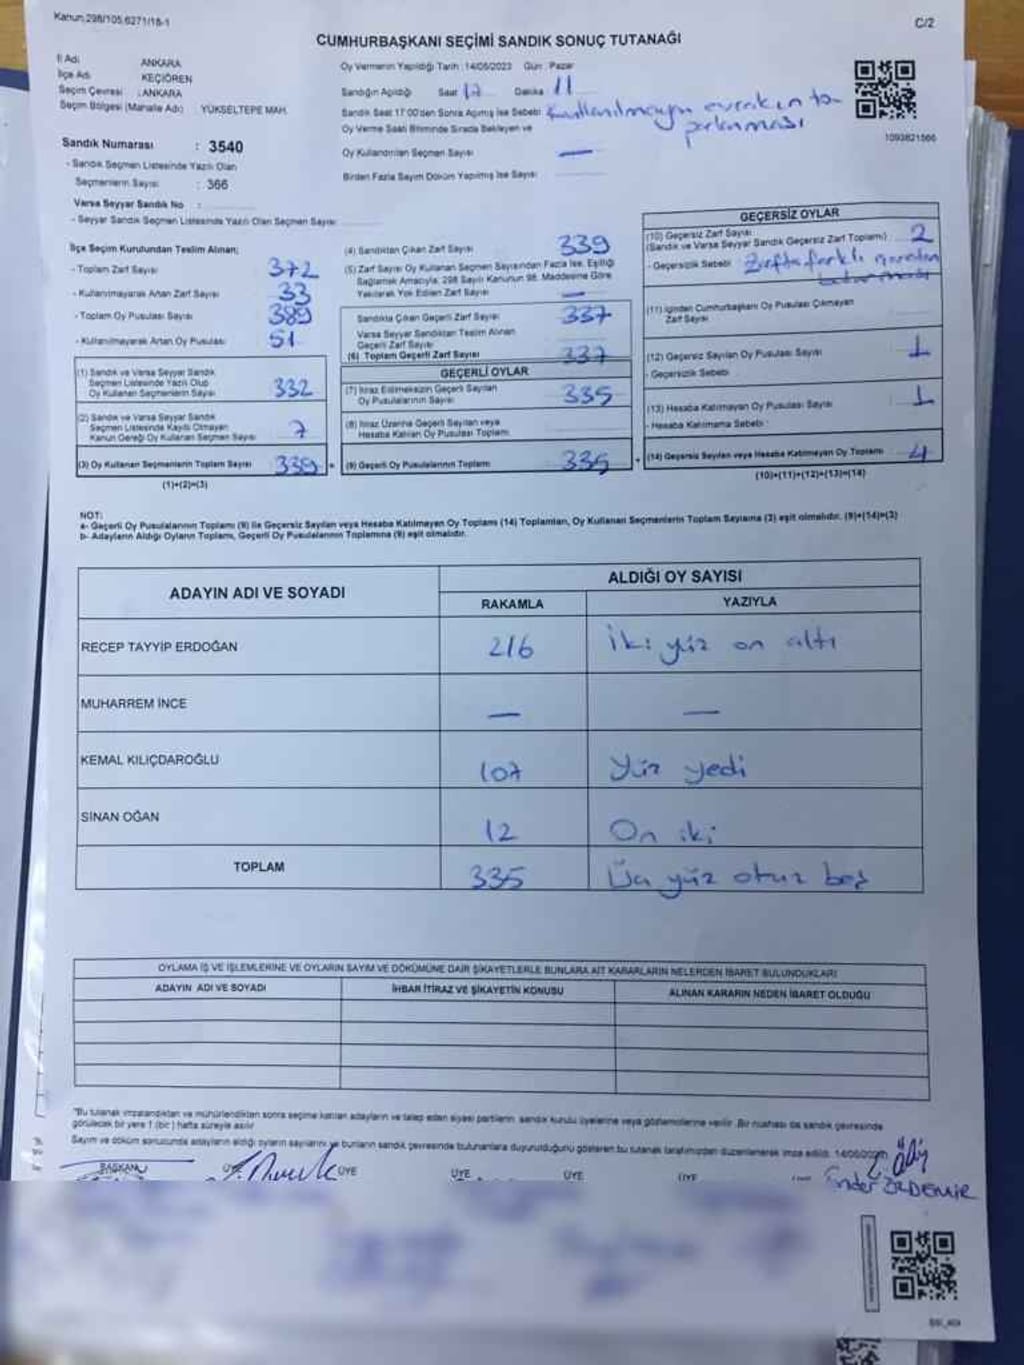 Kanun:298/105,6271/18-1
C/2
CUMHURBAŞKANI SEÇİMİ SANDIK SONUÇ TUTANAĞI
İl Adı ANKARA
İlçe Adı KEÇİÖREN
Seçim Çevresi : ANKARA
Seçim Bölgesi (Mahalle Adı) : YÜKSELTEPE MAH.
Sandık Numarası : 3540
- Sandık Seçmen Listesinde Yazılı Olan
Seçmenlerin Sayısı : 366
Varsa Seyyar Sandık No :
- Seyyar Sandık Seçmen Listesinde Yazılı Olan Seçmen Sayısı
Oy Vermenin Yapıldığı Tarih : 14/05/2023 Gün : Pazar
Sandığın Açıldığı Saat 17 Dakika 11
Sandık Saat 17:00'den Sonra Açılmış İse Sebebi Kullanılmayan evrakın to-
parlanması
Oy Verme Saati Bitiminde Sırada Bekleyen ve
Oy Kullandırılan Seçmen Sayısı —
Birden Fazla Sayım Döküm Yapılmış İse Sayısı
1093821566
İlçe Seçim Kurulundan Teslim Alınan;
- Toplam Zarf Sayısı 372
- Kullanılmayarak Artan Zarf Sayısı 33
- Toplam Oy Pusulası Sayısı 389
- Kullanılmayarak Artan Oy Pusulası 51
(1) Sandık ve Varsa Seyyar Sandık
Seçmen Listesinde Yazılı Olup
Oy Kullanan Seçmenlerin Sayısı 332
(2) Sandık ve Varsa Seyyar Sandık
Seçmen Listesinde Kayıtlı Olmayan
Kanun Gereği Oy Kullanan Seçmen Sayısı 7
(3) Oy Kullanan Seçmenlerin Toplam Sayısı 339
(1)+(2)=(3)
(4) Sandıktan Çıkan Zarf Sayısı 339
(5) Zarf Sayısı Oy Kullanan Seçmen Sayısından Fazla İse, Eşitliği
Sağlamak Amacıyla; 298 Sayılı Kanunun 98. Maddesine Göre
Yakılarak Yok Edilen Zarf Sayısı —
Sandıkta Çıkan Geçerli Zarf Sayısı 337
Varsa Seyyar Sandıktan Teslim Alınan
Geçerli Zarf Sayısı
(6) Toplam Geçerli Zarf Sayısı 337
GEÇERLİ OYLAR
(7) İtiraz Edilmeksizin Geçerli Sayılan
Oy Pusulalarının Sayısı 335
(8) İtiraz Üzerine Geçerli Sayılan veya
Hesaba Katılan Oy Pusulası Toplamı
(9) Geçerli Oy Pusulalarının Toplamı 335
GEÇERSİZ OYLAR
(10) Geçersiz Zarf Sayısı
(Sandık ve Varsa Seyyar Sandık Geçersiz Zarf Toplamı) 2
- Geçersizlik Sebebi Zarfta farklı
(11) İçinden Cumhurbaşkanı Oy Pusulası Çıkmayan
Zarf Sayısı
(12) Geçersiz Sayılan Oy Pusulası Sayısı 1
- Geçersizlik Sebebi
(13) Hesaba Katılmayan Oy Pusulası Sayısı 1
- Hesaba Katılmama Sebebi :
(14) Geçersiz Sayılan veya Hesaba Katılmayan Oy Toplamı 4
(10)+(11)+(12)+(13)=(14)
NOT:
a- Geçerli Oy Pusulalarının Toplamı (9) ile Geçersiz Sayılan veya Hesaba Katılmayan Oy Toplamı (14) Toplamları, Oy Kullanan Seçmenlerin Toplam Sayısına (3) eşit olmalıdır. (9)+(14)=(3)
b- Adayların Aldığı Oyların Toplamı, Geçerli Oy Pusulalarının Toplamına (9) eşit olmalıdır.
ADAYIN ADI VE SOYADI ALDIĞI OY SAYISI
RAKAMLA YAZIYLA
RECEP TAYYİP ERDOĞAN 216 İki yüz on altı
MUHARREM İNCE — —
KEMAL KILIÇDAROĞLU 107 Yüz yedi
SİNAN OĞAN 12 On iki
TOPLAM 335 Üç yüz otuz beş
OYLAMA İŞ VE İŞLEMLERİNE VE OYLARIN SAYIM VE DÖKÜMÜNE DAİR ŞİKAYETLERLE BUNLARA AİT KARARLARIN NELERDEN İBARET BULUNDUKLARI
ADAYIN ADI VE SOYADI İHBAR İTİRAZ VE ŞİKAYETİN KONUSU ALINAN KARARIN NEDEN İBARET OLDUĞU
"Bu tutanak imzalandıktan ve mühürlendikten sonra seçime katılan adayların ve talep eden siyasi partilerin sandık kurulu üyelerine veya gözlemcilerine verilir. Bir nüshası da sandık çevresinde
görülecek bir yere 1 (bir) hafta süreyle asılır
Sayım ve döküm sonucunda adayların aldığı oyların sayılarını ve bunların sandık çevresinde bulunanlara duyurulduğunu gösteren bu tutanak tarafımızdan düzenlenerek imza edildi. 14/05/2023
BAŞKAN ÜYE ÜYE ÜYE ÜYE ÜYE
Önder ÖZDEMİR